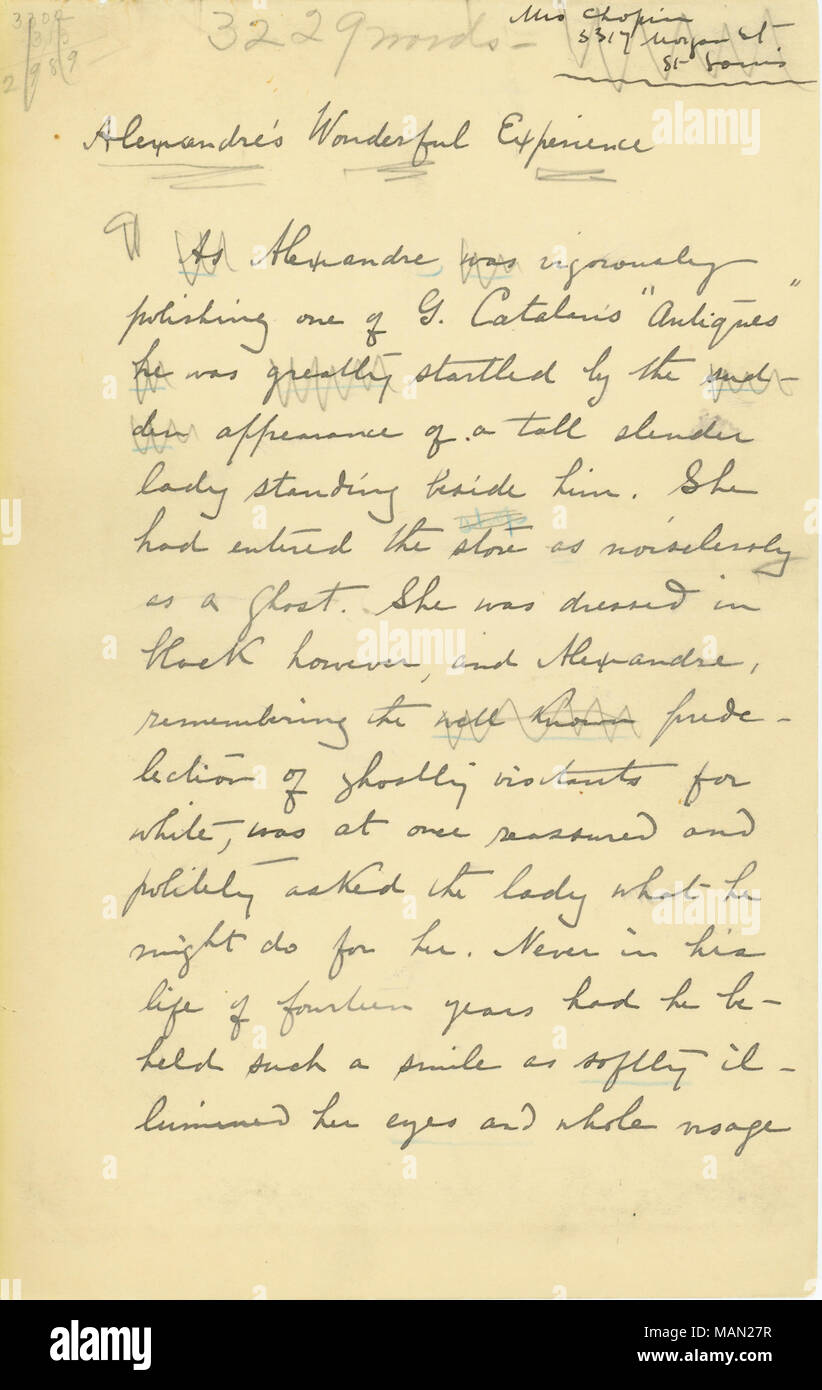 3229 words –
Mrs Chopin
3317 Morgan St
St Louis
Alexandre's Wonderful Experience
As Alexandre, was vigorously
polishing one of G. Catalan's "Antiques"
he was greatly startled by the sud-
den appearance of a tall slender
lady standing beside him. She
had entered the store as noiselessly
as a ghost. She was dressed in
black however, and Alexandre,
remembering the well known prede-
lection of ghostly visitants for
white, was at once reassured and
politely asked the lady what he
might do for her. Never in his
life of fourteen years had he be-
held such a smile as softly il-
lumined her eyes and whole visage
alamy
Image ID: MAN27R
www.alamy.com